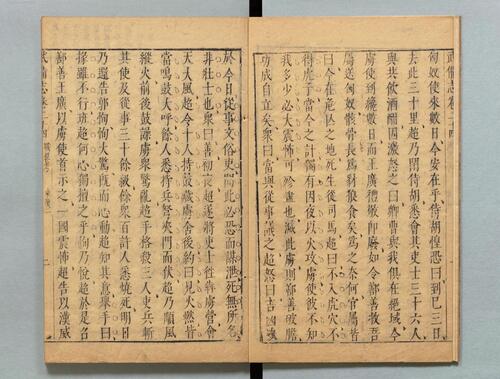 武備志卷二十四
匈奴使來數日今安在乎侍胡惶恐曰到已三日
去此三十里超乃閉侍胡悉會其吏士三十六人
與共飲酒酣因激怒之曰卿曹與我俱在絕域今
虜使到纔數日而王廣禮敬即廢如令鄯善收吾
屬送匈奴骸骨長為豺狼食矣為之奈何官屬皆
曰今在危亡之地死生從司馬超曰不入虎穴不
得虎子當今之計獨有因夜以火攻虜使彼不知
我多少必大震怖可殄盡也滅此虜則鄯善破膽
功成自立矣衆曰當與從事議之超怒曰吉凶決
於今日從事文俗吏聞此必恐而謀泄死無所名
非壯士也衆曰善初夜超遂將吏士往犇虜營會
天大風超令十人持鼓藏虜舍後約曰見火燃皆
當鳴鼓大呼餘人悉持兵弩夾門而伏超乃順風
縱火前後鼓譟虜衆驚亂超手格殺三人吏兵斬
其使及從事三十餘級餘衆百許人悉燒死明日
乃還告郭恂恂大驚既而心動超知其意舉手曰
掾雖不行班超何心獨擅之乎恂乃悅超於是召
鄯善王廣以虜使首示之一國震怖超告以漢威
武備志卷二十四 二